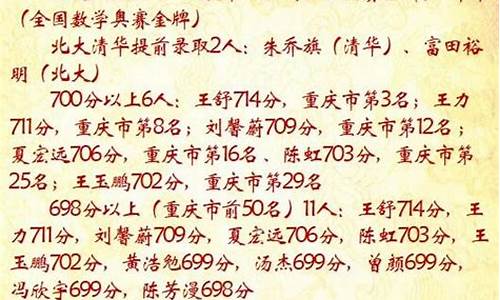 （全国数学奥赛金牌）
北大清华提前录取2人：朱乔旗（清华）、富田裕
明（北大）
700分以上6人：王舒714分，重庆市第3名；王力
711分，重庆市第8名；刘馨蔚709分，重庆市第12名；
夏宏远706分，重庆市第16名、陈虹703分，重庆市第
25名；王玉鹏702分，重庆市第29名
698分以上（重庆市前50名）11人：王舒714分，王
力711分，刘馨蔚709分，夏宏远706分，陈虹703分，王
玉鹏702分，黄浩勉699分，汤杰699分，曾颜699分，
冯欣宇699分，陈芳漫698分